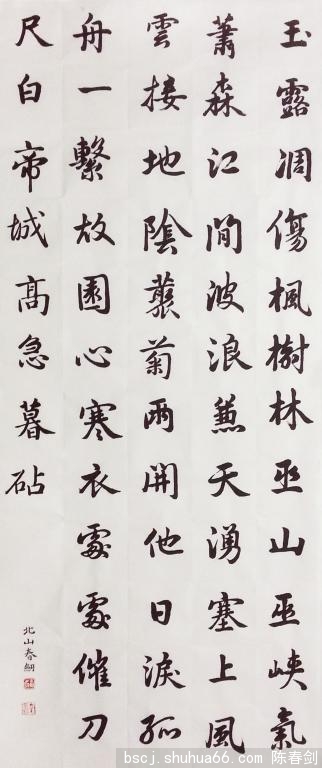 玉露凋傷楓樹林巫山巫峽氣
蕭森江間波浪兼天湧塞上風
雲接地陰叢菊兩開他日淚孤
舟一繫故園心寒衣處處催刀
尺白帝城髙急暮砧
北山春
bscj.shuhua66.com 陈春剑